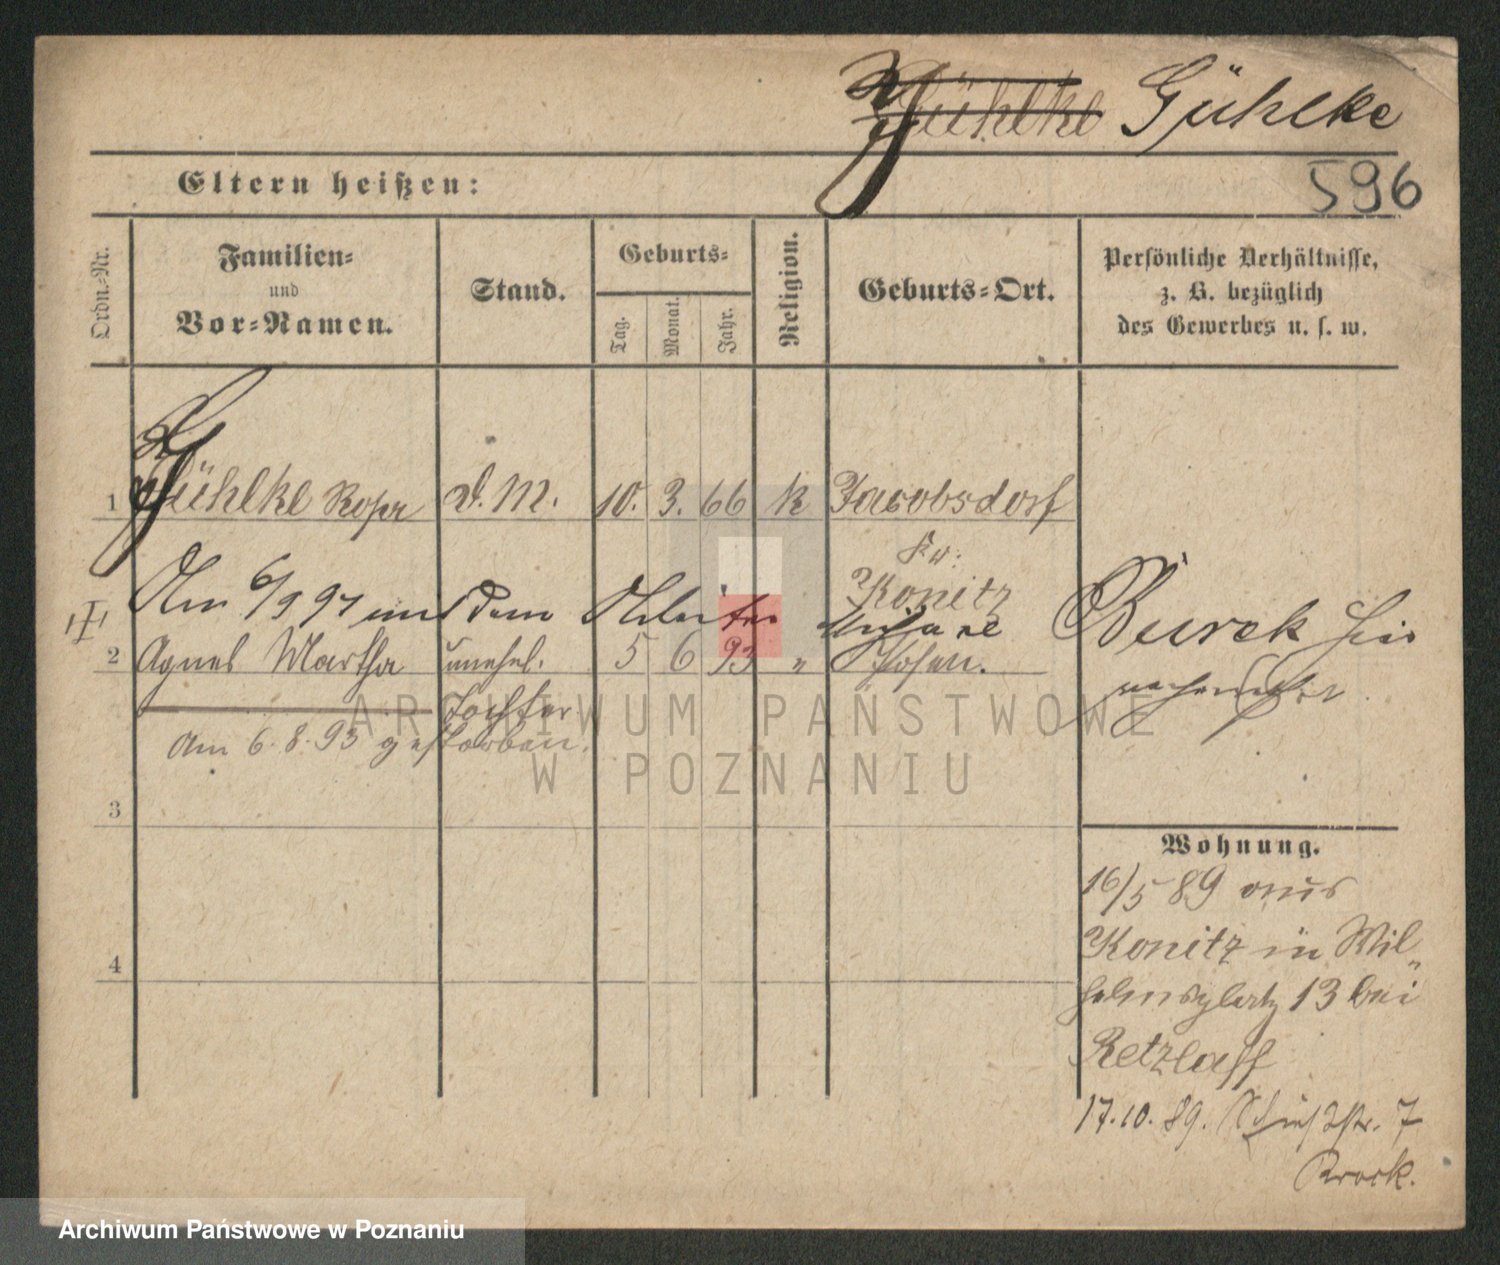 Gühlke Gühlke
596
Eltern heißen:
Ordn.-Nr.
Familien-
und
Vor-Namen.
Stand.
Geburts-
Tag.
Monat.
Jahr.
Religion.
Geburts-Ort.
Persönliche Verhältnisse,
z. B. bezüglich
des Gewerbes u. s. w.
1 Gühlke Rosa d. M. 10. 3. 66 k Jacobsdorf
Kr:
Konitz
Am 6/9 97 mit dem Arbeiter Michael Burek hier
2 Agnes Martha unehel. 5 6 93 " Posen.
Tochter
am 6. 8. 93 gestorben.
3
4
Wohnung.
16/5 89 aus
Konitz in Wil-
helmsplatz 13 bei
Retzlaff
17.10.89. 7
ARCHIWUM PAŃSTWOWE
W POZNANIU
Archiwum Państwowe w Poznaniu